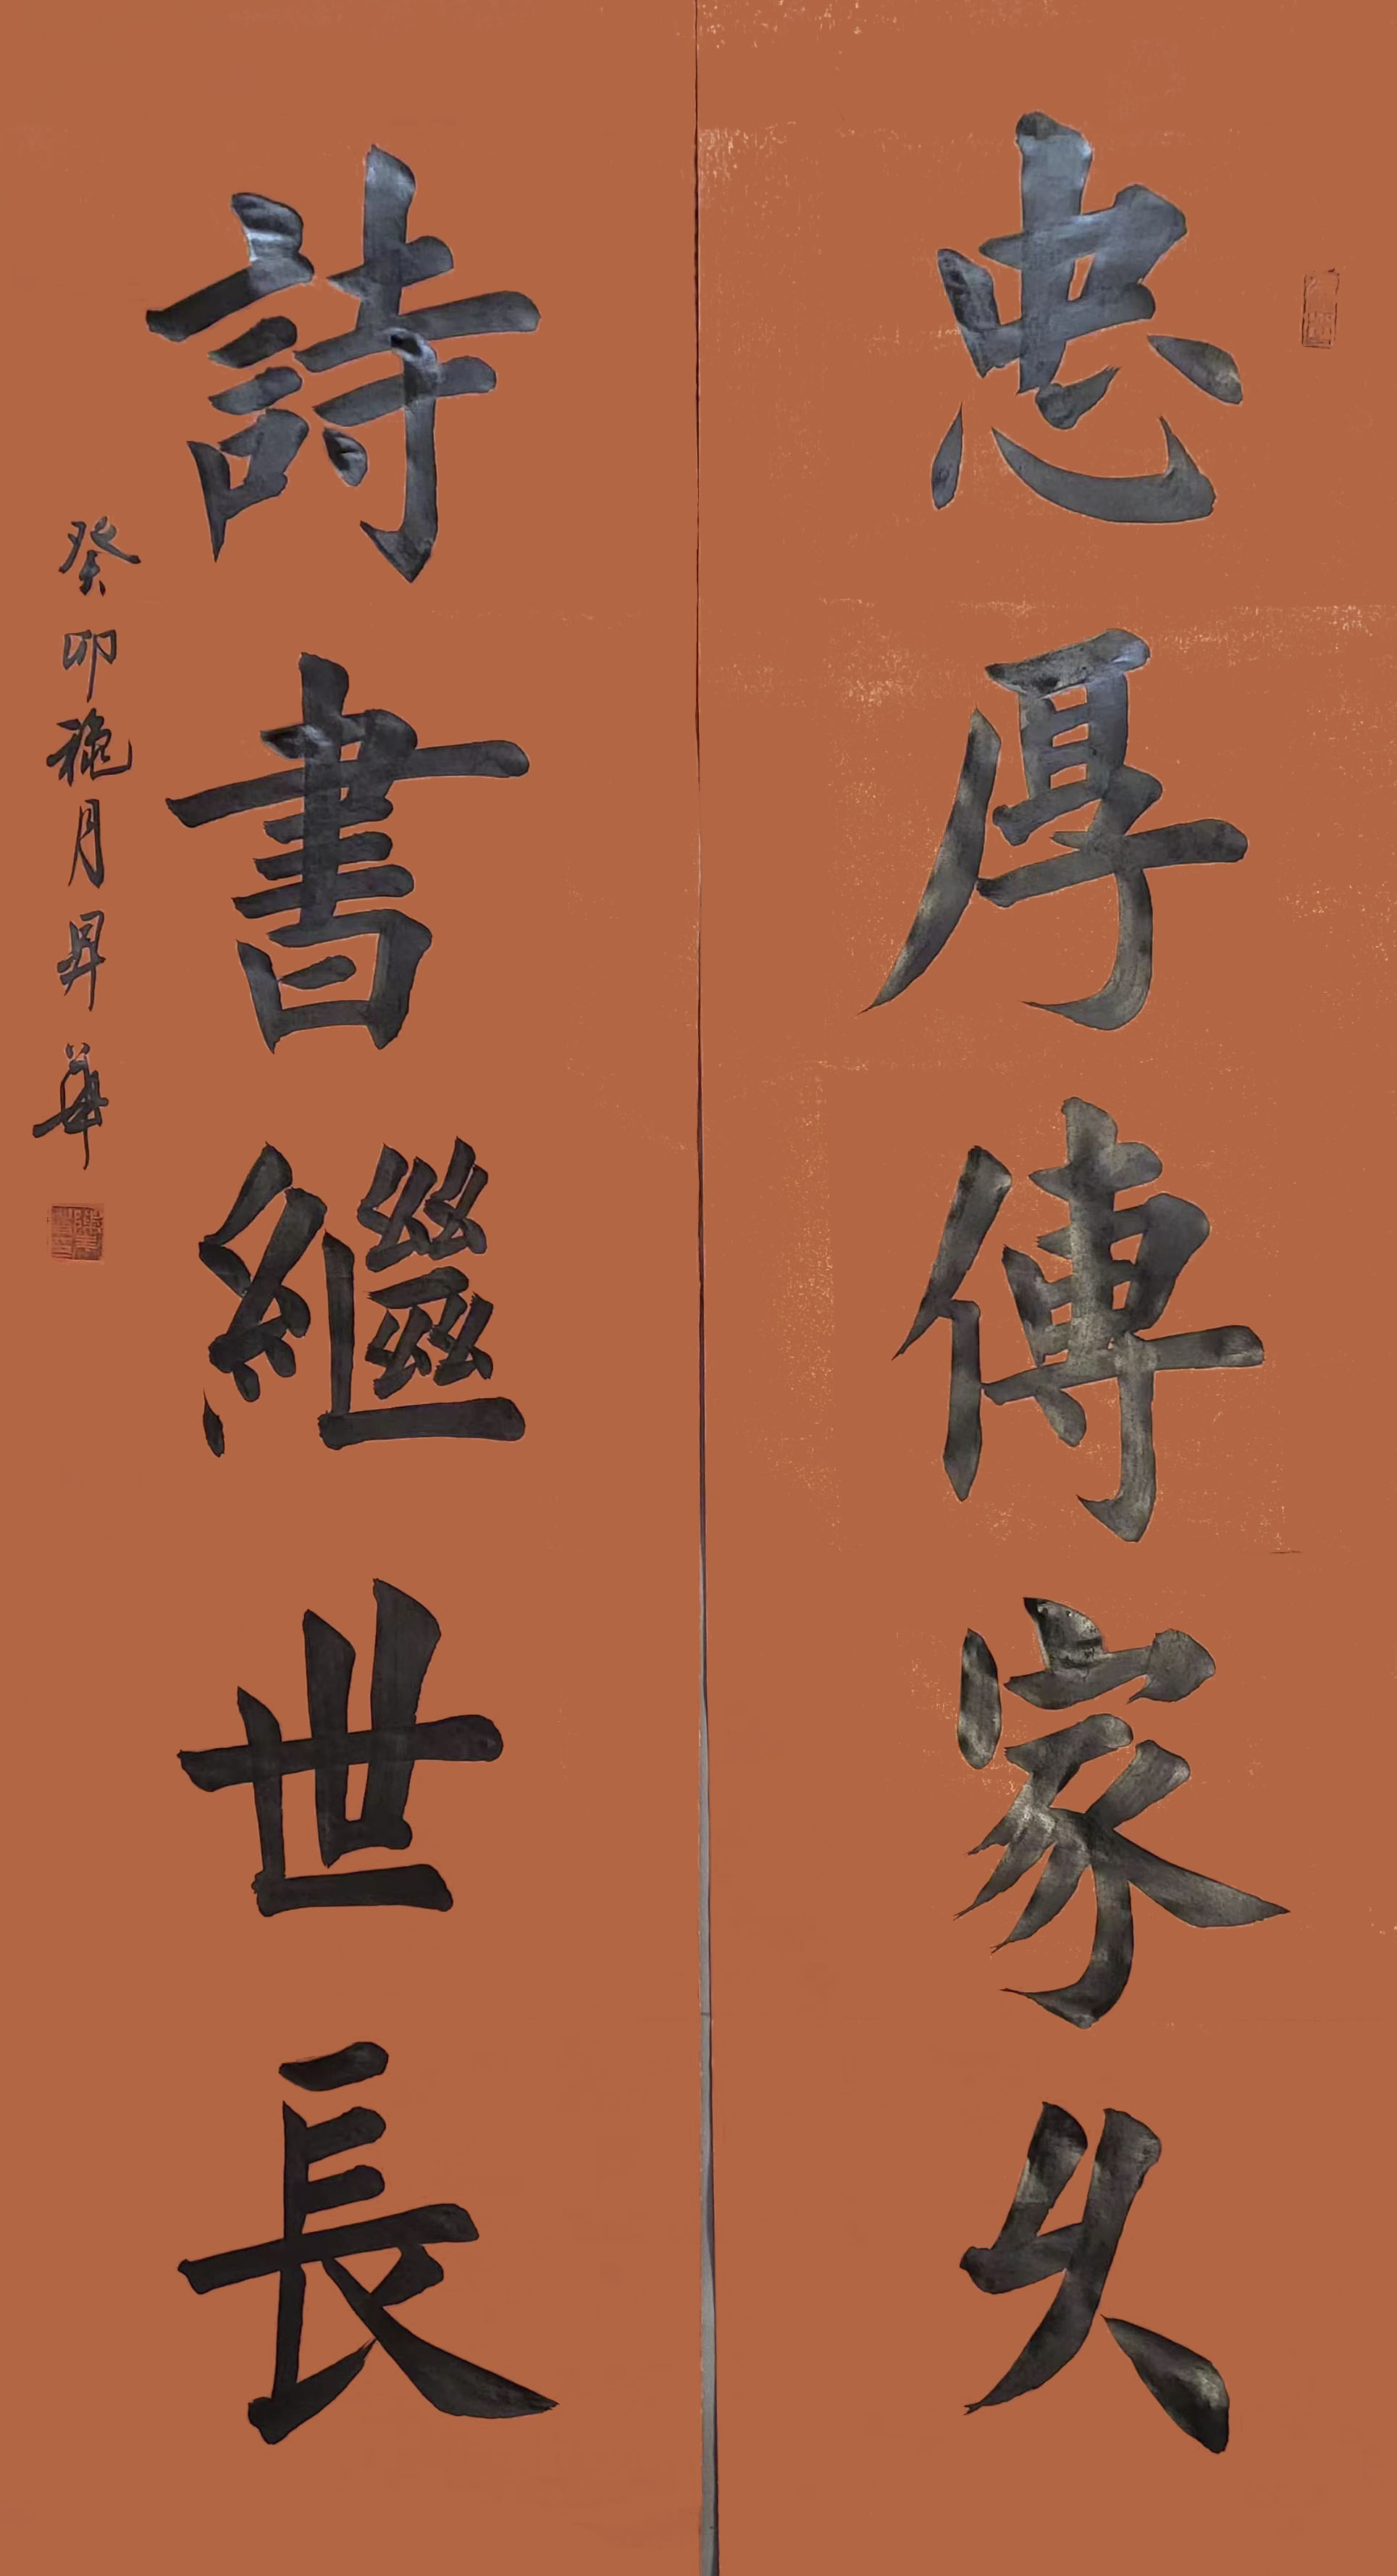 忠厚傳家久
詩書繼世長
癸卯龝月昇華